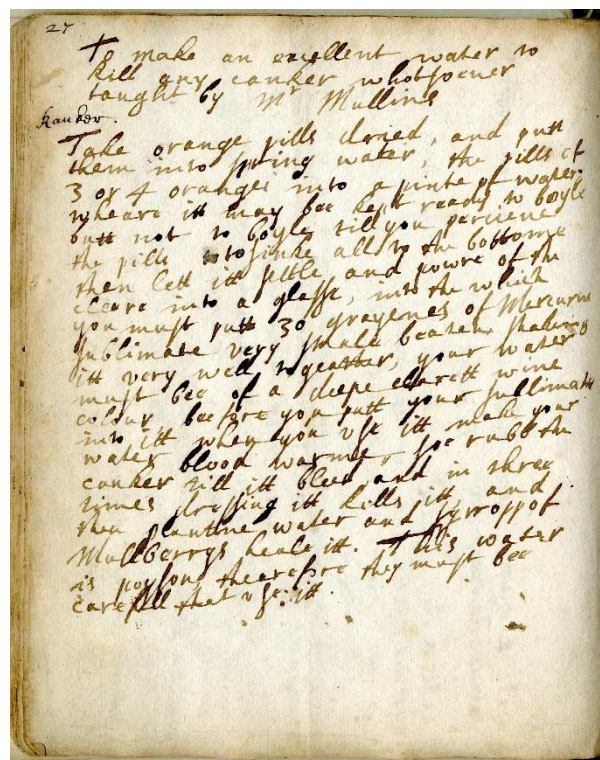 27
To make an excellent water to
kill any canker whotsoever
taught by Mr Mullins
kanker.
Take orange pills dryed, and putt
them into spring water, the pills of
3 or 4 oranges into a pinte of water
wheare itt may bee kept ready to boyle
butt not to boyle till you perceive
the pills to sinke all to the bottome
then lett itt settle and powre of the
cleare into a glasse, into the which
you must putt 30 grayenes of Mercurius
sublimate very smale beaten shaking
itt very well togeather, your water
must bee of a deepe clarett wine
colour beefore you putt your sublimate
into itt when you use itt make your
water blood warme soe rubb the
canker till itt bleed and in three
times dressing itt kills itt, and
then plantine water and syrrop of
Mullberrys heale itt. This water
is poyson thearefore they must bee
carefull that use itt.